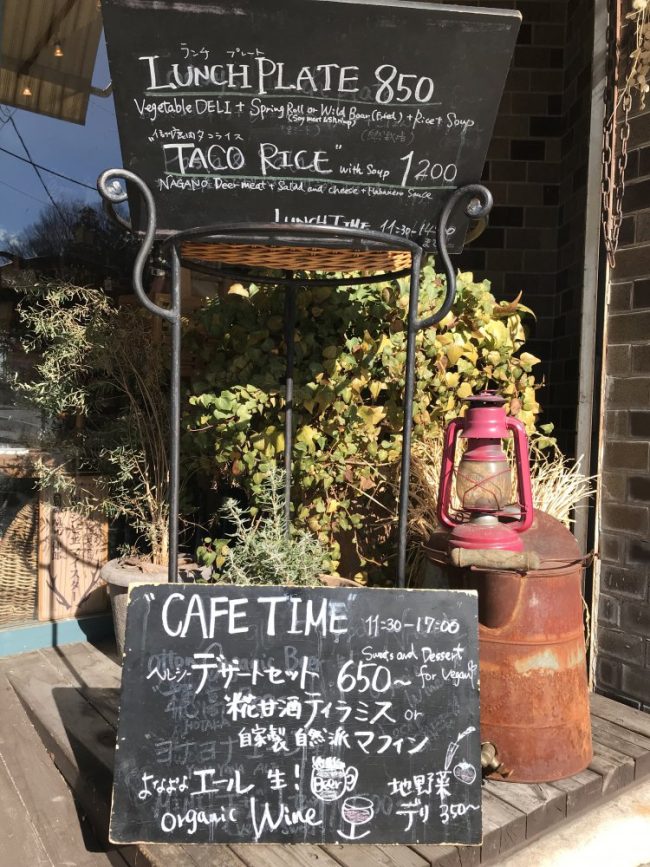 ランチ プレート
LUNCH PLATE 850
Vegetable DELI + Spring Roll or Wild Boar (Fried) + Rice + Soup
(Soy meat & Shrimp)
タコライス
"TACO RICE" with Soup 1200
NAGANO Deer meat + Salad and cheese + Habanero Sauce
LUNCH TIME 11:30-14:00
まで
"CAFE TIME" 11:30-17:00
Sweets and Dessert
for Vegan
ヘルシーデザートセット 650~
糀甘酒ティラミス or
自家製 自然派 マフィン
よなよなエール 生! 地野菜
Beer
organic Wine デリ 350~